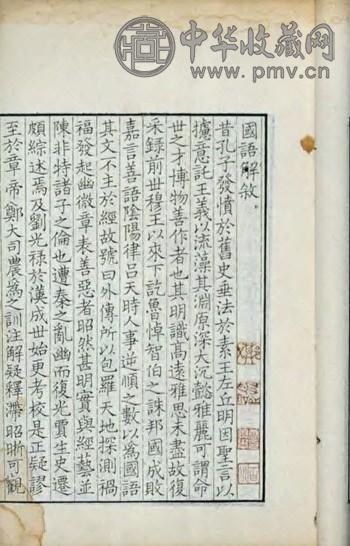 中华收藏网
www.pmv.cn
國語解敘
昔孔子發憤於舊史垂法於素王左丘明因聖言以
攄意託王義以流藻其淵原深大沉懿雅麗可謂命
世之才博物善作者也其明識高遠雅思未盡故復
采錄前世穆王以來下訖魯悼智伯之誅邦國成敗
嘉言善語陰陽律吕天時人事逆順之數以為國語
其文不主於經故號曰外傳所以包羅天地探測禍
福發起幽微章表善惡者昭然甚明實與經藝並
陳非特諸子之倫也遭秦之亂幽而復光賈生史遷
頗綜述焉及劉光祿於漢成世始更考校是正疑謬
至於章帝鄭大司農為之訓注解疑釋滯昭晣可觀